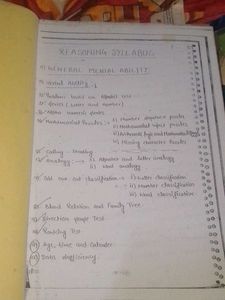 REASONING SYLLABUS
GENERAL MENTAL ABILITY
Verbal Ability
Problem based on Alphabet
Series (Letter and number)
Alpha numeric series
Mathematical Puzzles :- i) Number sequence puzzle
ii) Mathematical signs puzzle
iii) Arithmetic
iv) Missing character puzzle
Coding - Decoding
Analogy :- i) Number and letter analogy
ii) Word analogy
Odd one out classification :- i) Letter classification
ii) Number classification
iii) Word classification
Blood Relation and Family Tree
Direction Test
Ranking Test
Age, time and Calendar
Data sufficiency